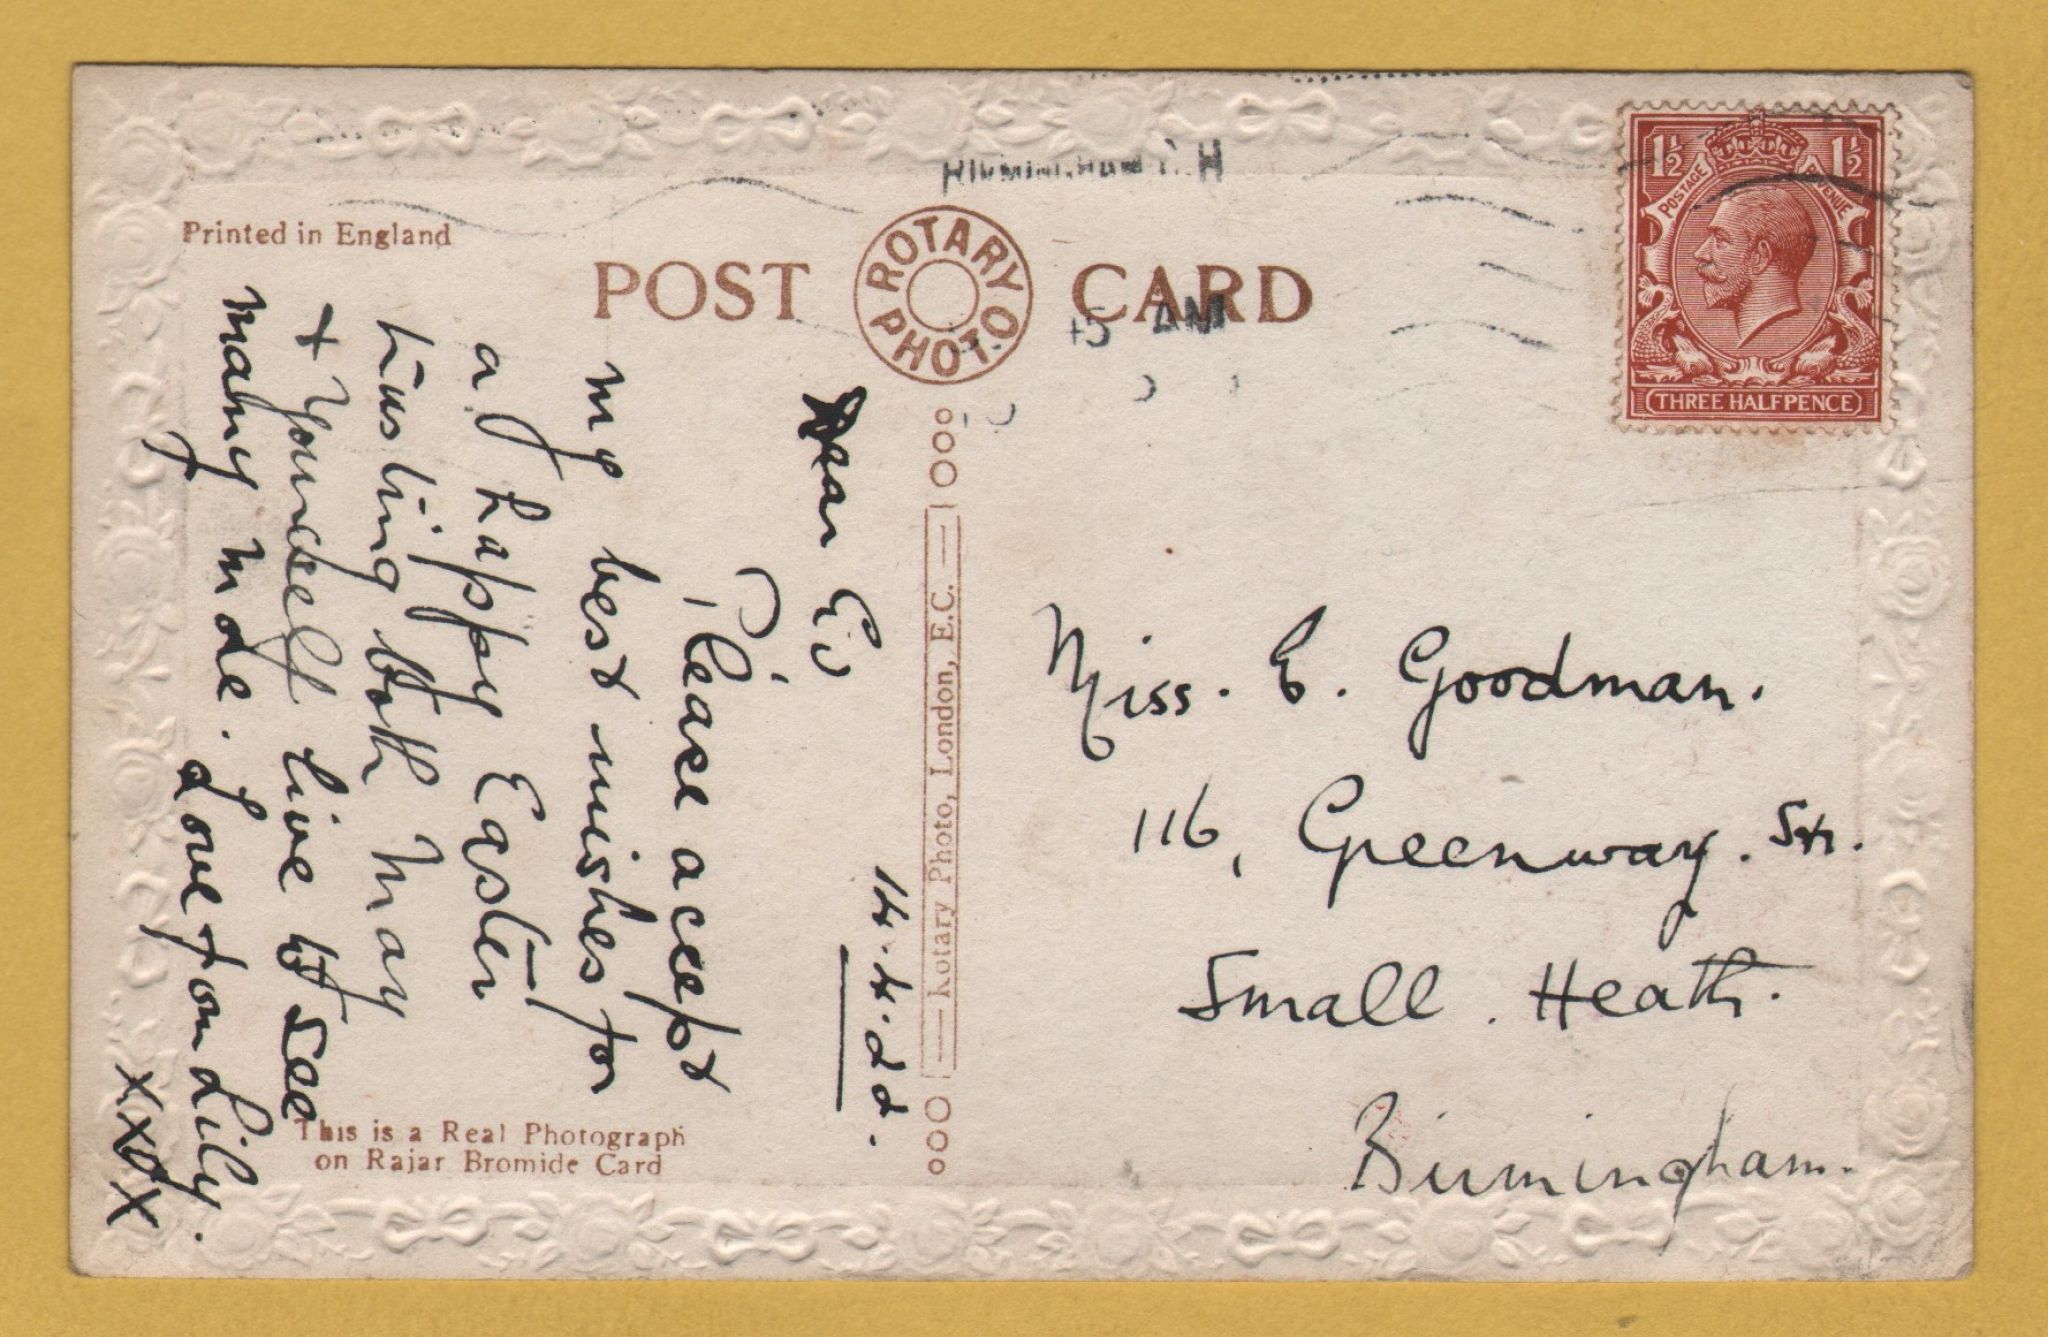 Printed in England
POST CARD
ROTARY PHOTO
1½ 1½
POSTAGE REVENUE
THREE HALFPENCE
AM
14.4.22.
Dear
Please accept
my best wishes for
a happy Easter
trusting both may
+ yourself live to see
many more. Love from Lily.
XXXX
Rotary Photo, London, E.C.
This is a Real Photograph
on Rajar Bromide Card
Miss. E. Goodman.
116, Greenway. St.
Small. Heath.
Birmingham.